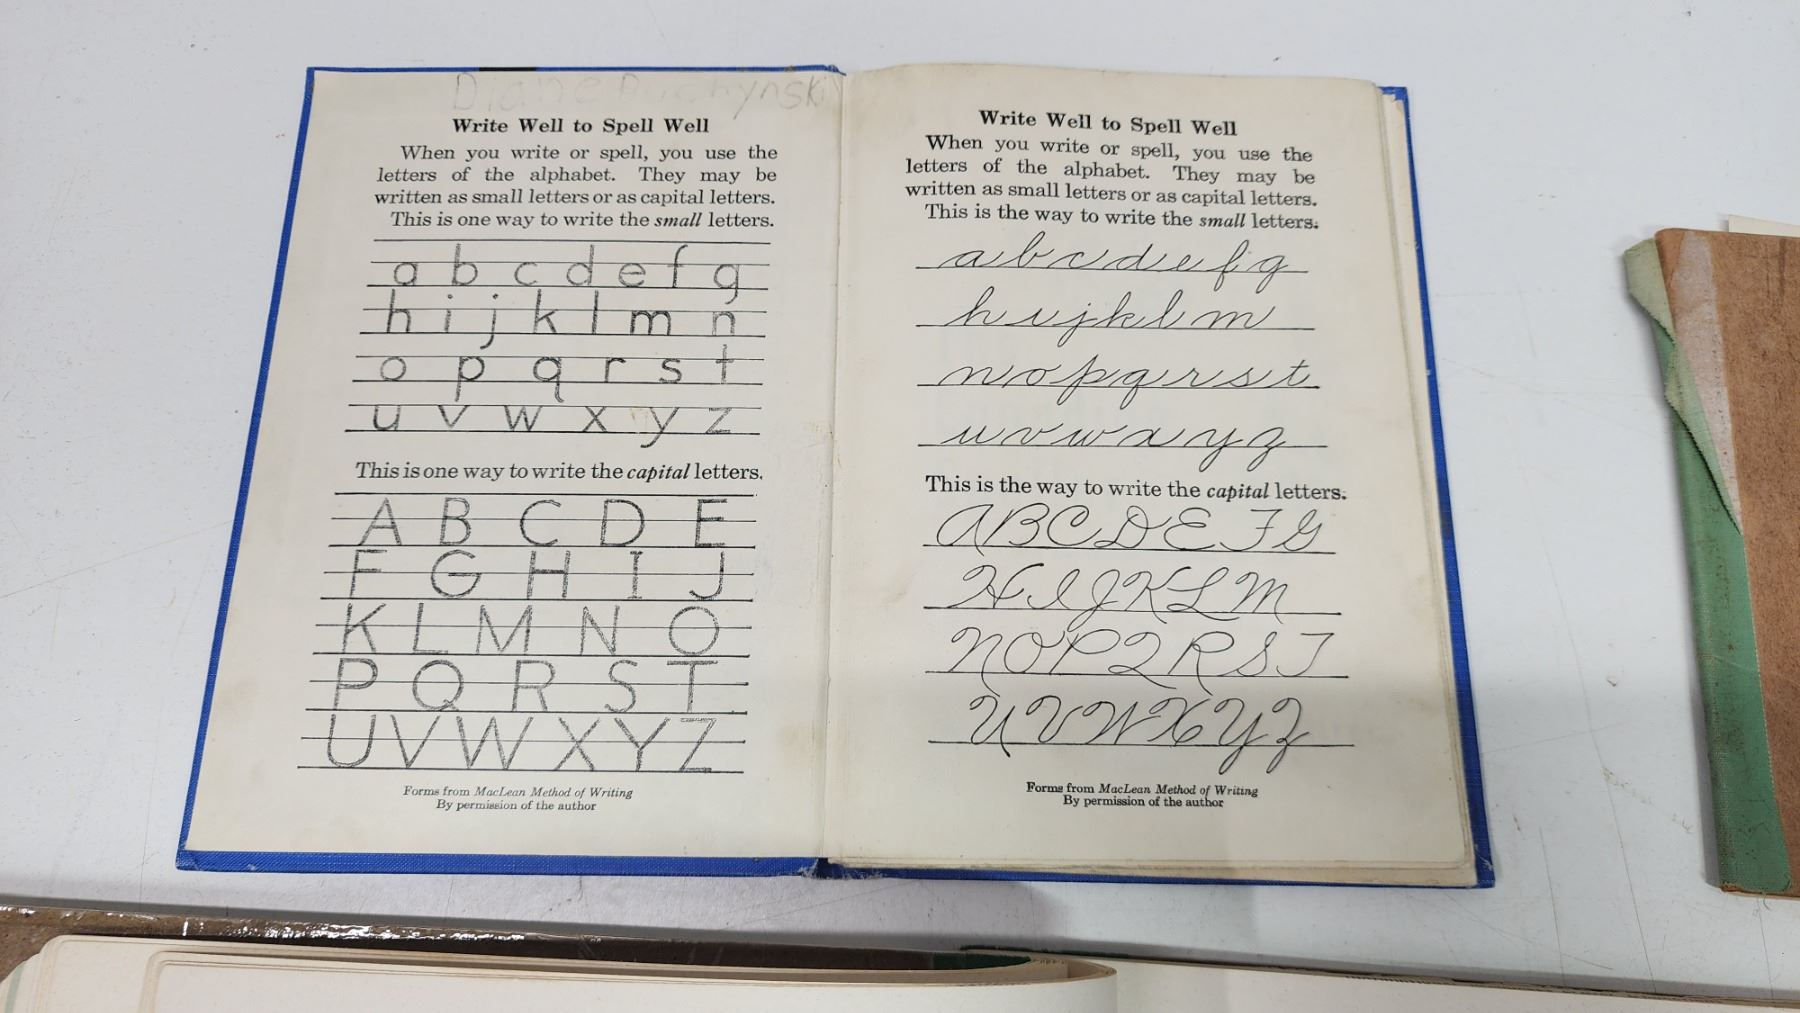 Diane Duchynski
Write Well to Spell Well
When you write or spell, you use the
letters of the alphabet. They may be
written as small letters or as capital letters.
This is one way to write the small letters.
a b c d e f g
h i j k l m n
o p q r s t
u v w x y z
This is one way to write the capital letters.
A B C D E
F G H I J
K L M N O
P Q R S T
U V W X Y Z
Forms from MacLean Method of Writing
By permission of the author
Write Well to Spell Well
When you write or spell, you use the
letters of the alphabet. They may be
written as small letters or as capital letters.
This is the way to write the small letters.
a b c d e f g
h i j k l m
n o p q r s t
u v w x y z
This is the way to write the capital letters.
A B C D E F G
H I J K L M
N O P Q R S T
U V W X Y Z
Forms from MacLean Method of Writing
By permission of the author